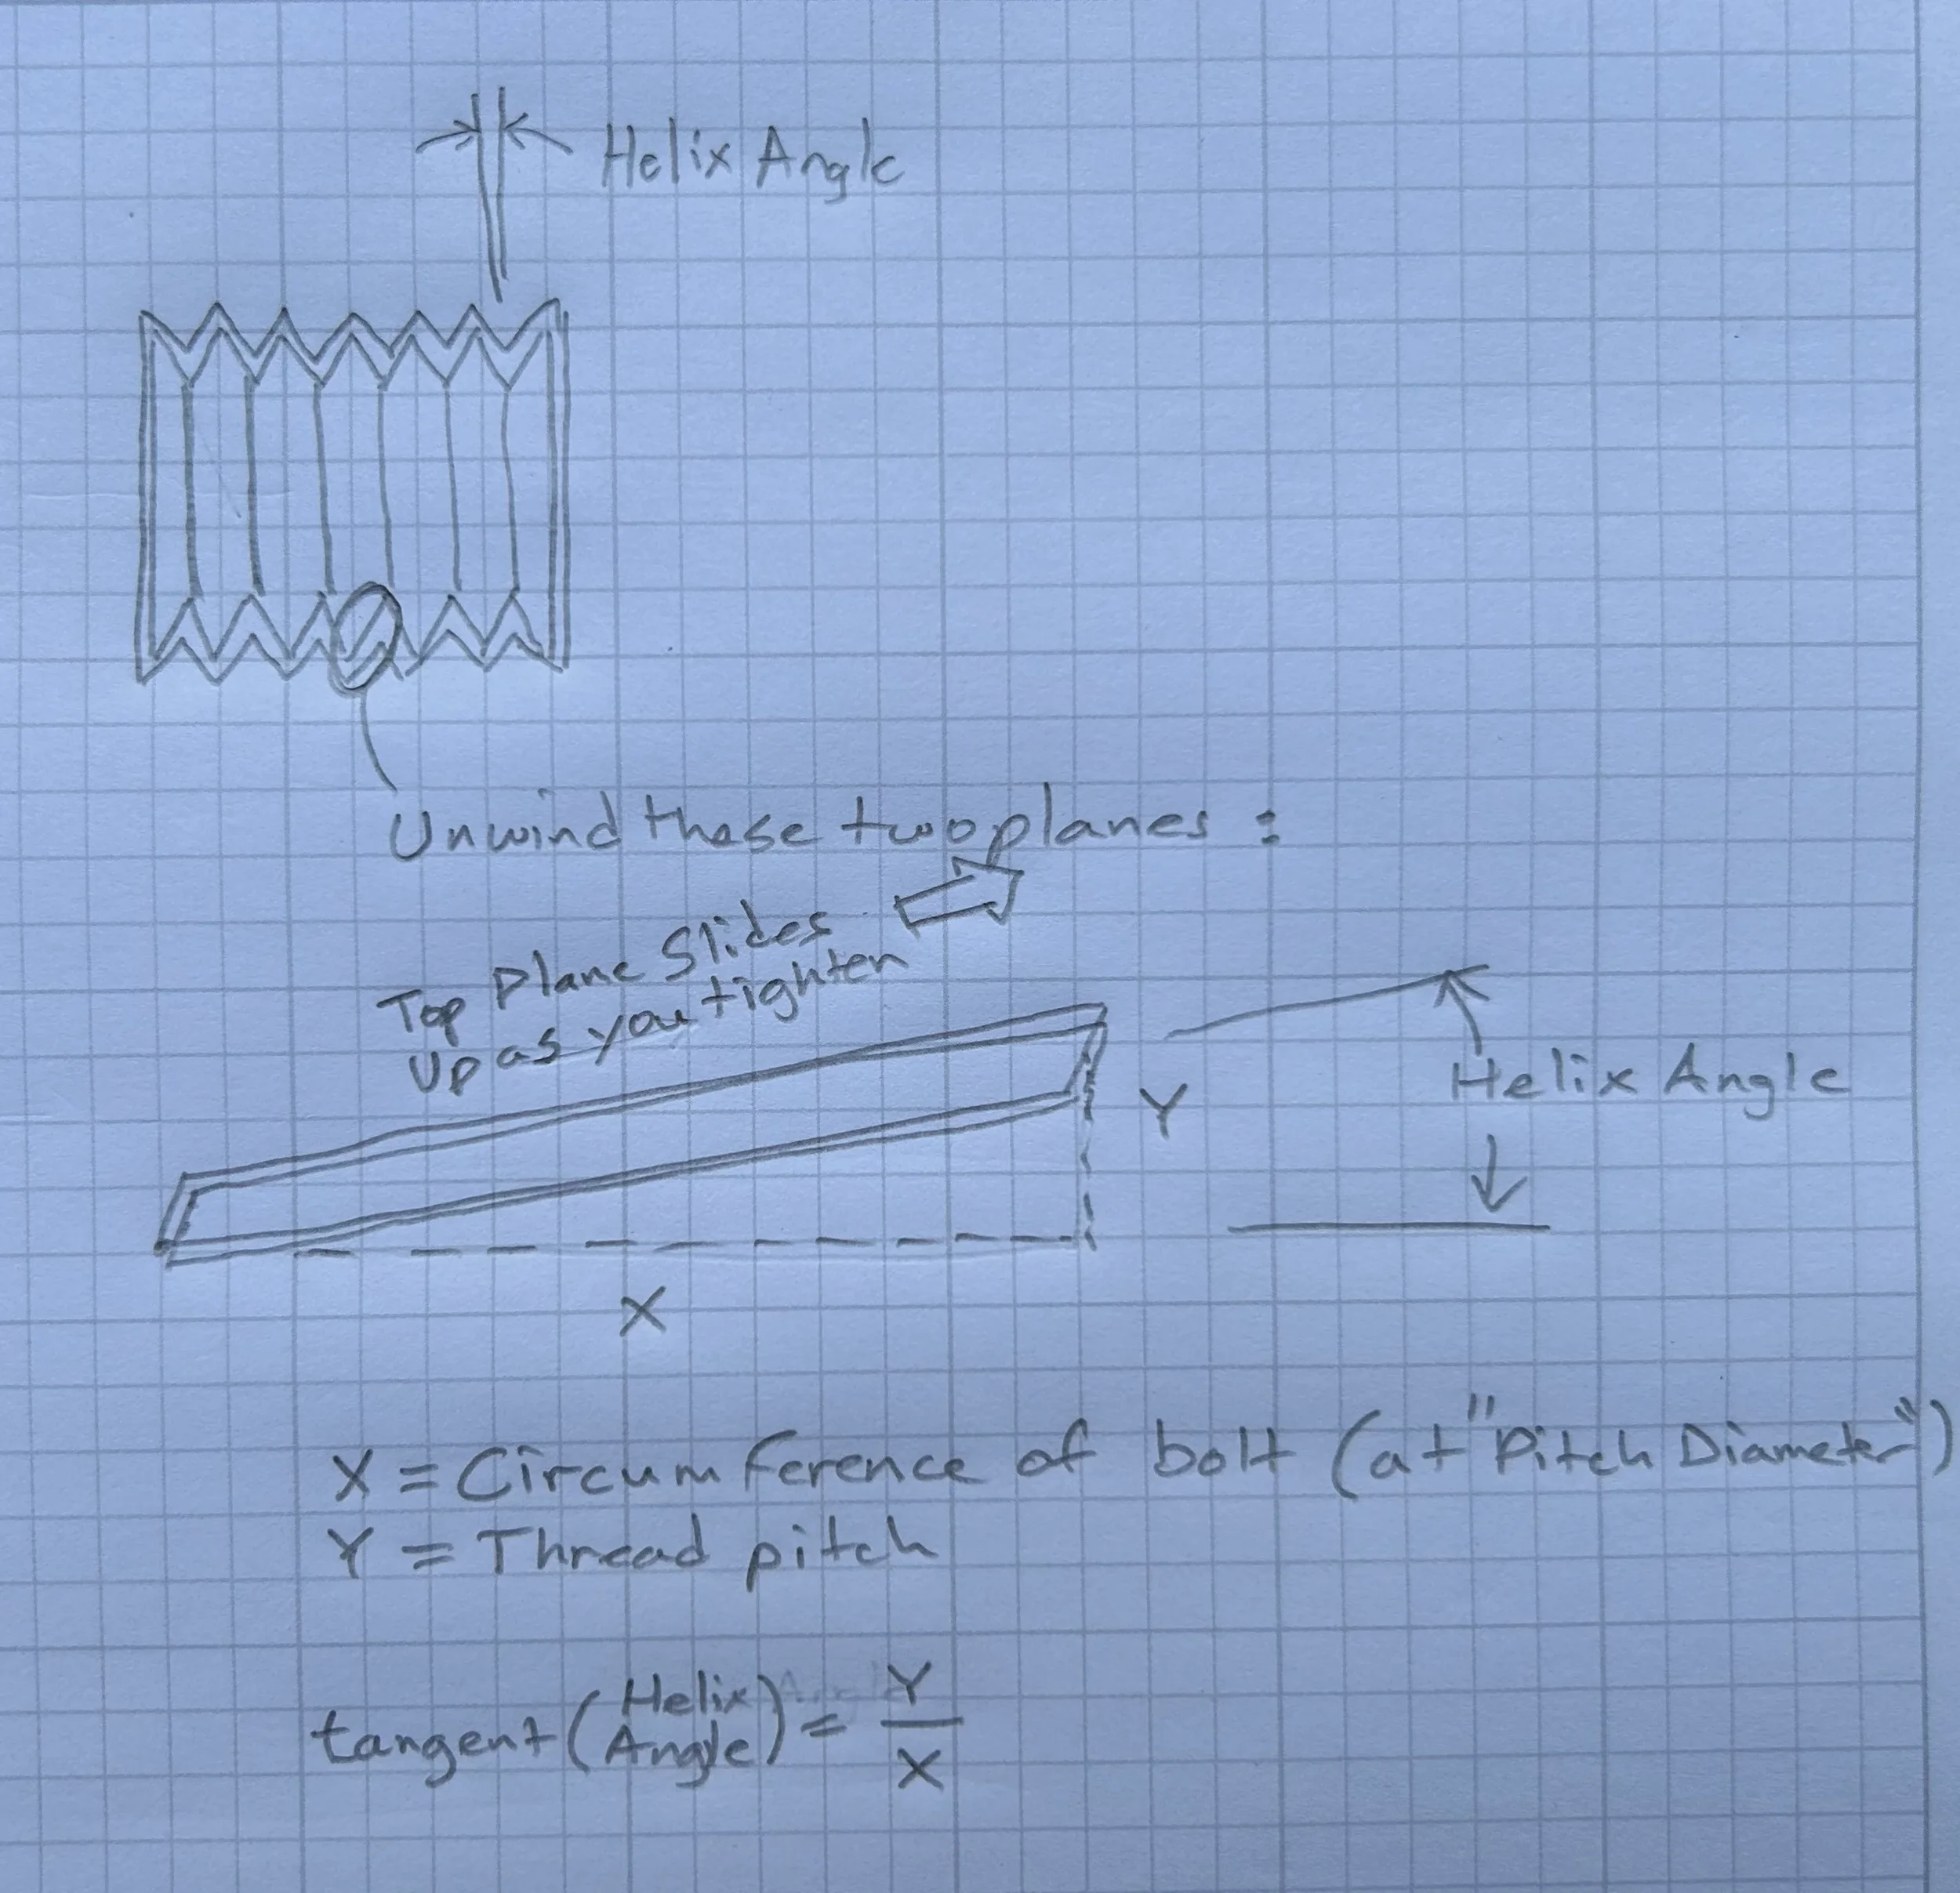 Helix Angle
Unwind these two planes :
Top Plane Slides
Up as you tighten
Y
Helix Angle
X
X = Circumference of bolt (at "Pitch Diameter")
Y = Thread pitch
tangent (Helix Angle) = Y
X